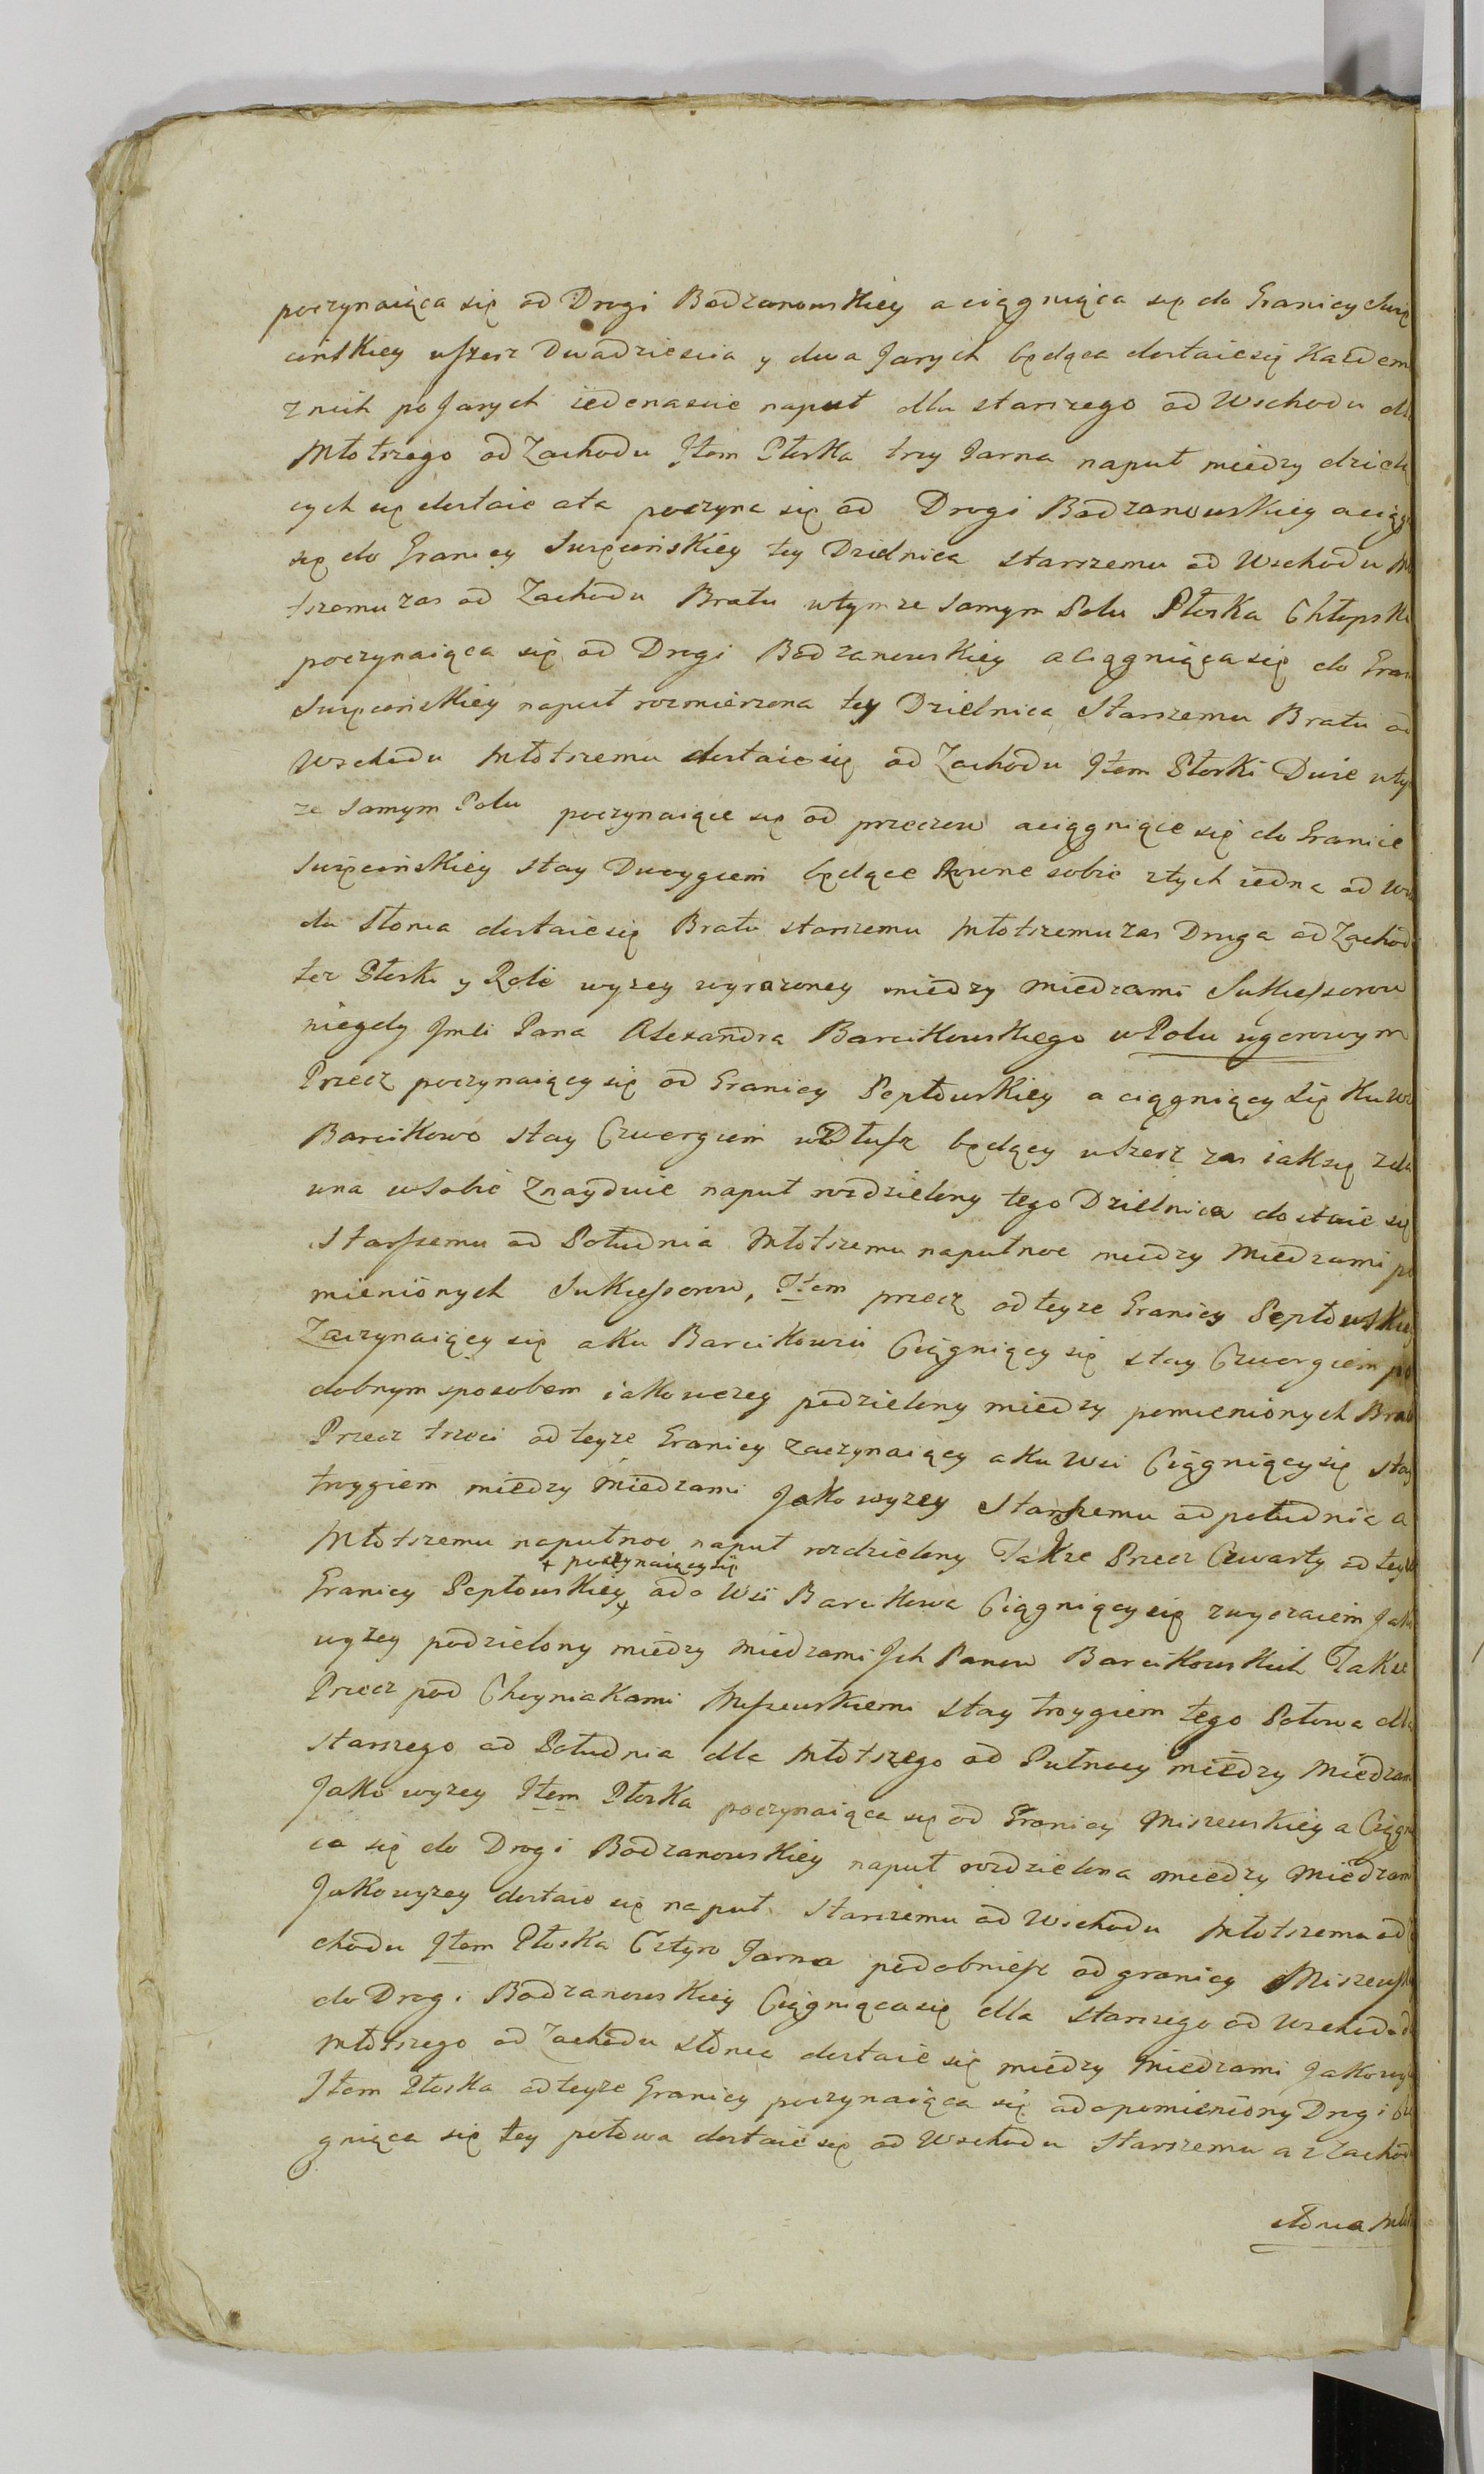 poczynaiąca się od Drogi Bodzanowskiey a ciągniąca się do Granicy Swię
cińskiey wszerz Dwadziescia y dwa Jarych będąca dostaie się Kazdem
z nich po Jarych iedenascie naput dla starszego od Wschodu dla
Młotszego od Zachodu Item Płoska trzy Jarna naput miedzy dziel
cych się dostaie a ta poczyna się od Drogi Bodzanowskiey a ciąg
się do Granicy Swięcinskiey tey Dzielnica starszemu od Wschodu M
tszemu zas od Zachodu Bratu w tym ze samym Polu Płoska Chłopska
poczynaiąca się od Drogi Bodzanowskiey a ciągniąca się do Gran
Swięcinskiey naput rozmierzona tey Dzielnica Starszemu Bratu od
Wschodu Młotszemu dostaie się od Zachodu Item Płoski Dwie w ty
ze samym Polu poczynaiące się od przeczow a ciągniące się do Granice
Swięcinskiey stay Dwoygiem będące Rowne sobie z tych iedna od Ws
du Słonca dostaie się Bratu starszemu Młotszemu zas Druga od Zachodu
tez Płoski y Role wyzey wyrazoney miedzy miedzami Sukcessorow
niegdy Jmci Pana Alexandra Barcikowskiego w Polu ugorowym
Przecz poczynaiący się od Granicy Peptowskiey a ciągniący się Ku Ws
Barcikowo stay Czworgiem wzdłusz będący wszerz zas iak się zda
wna w sobie Znayduie naput rozdzielony tego Dzielnica dostaie się
Starszemu od Południa Młotszemu naputnoc miedzy Miedzami po
mienionych Sukcessorow, Item przecz od teyze Granicy Peptowskiey
Zaczynaiący się a ku Barcikowu Ciągniący się stay Czworgiem po
dobnym sposobem iako wyzey podzielony miedzy pomienionych Brac
Przecz trzeci od teyze Granicy zaczynaiący a ku Wsi Ciągniący się stay
troygiem miedzy Miedzami Jako wyzey Starszemu od południa a
Młotszemu naputnoc naput rozdzielony Takze Przecz Czwarty od teyze
+ poczynaiący się
Granicy Peptowskiey + ado Wsi Barcikowa Ciągniący się zwyczaiem Jako
wyzey podzielony miedzy miedzami Jch Panow Barcikowskich Takze
Przecz pod Choyniakami Mszewskiemi stay troygiem tego Połowa dla
starszego od Południa dla Młotszego od Pułnocy miedzy Miedzami
Jako wyzey Item Płoska poczynaiąca się od Granicy Miszewskiey a Ciągn
ca się do Drogi Bodzanowskiey naput rozdzielona miedzy Miedzami
Jako wyzey dostaie się naput Starszemu od Wschodu Młotszemu od Z
chodu Item Płoska Cztyro Jarna podobniesz od granicy Miszewsk
do Drogi Bodzanowskiey Ciągniąca się dla starszego od Wschodu d
Młotszego od Zachodu słonca dostaie się miedzy Miedzami Jako wyz
Item Płoska od teyze Granicy poczynaiąca się ado pomieniony Drogi Cią
gniąca się tey połowa dostaie się od Wschodu Starszemu a z Zachodu
słonca Mło